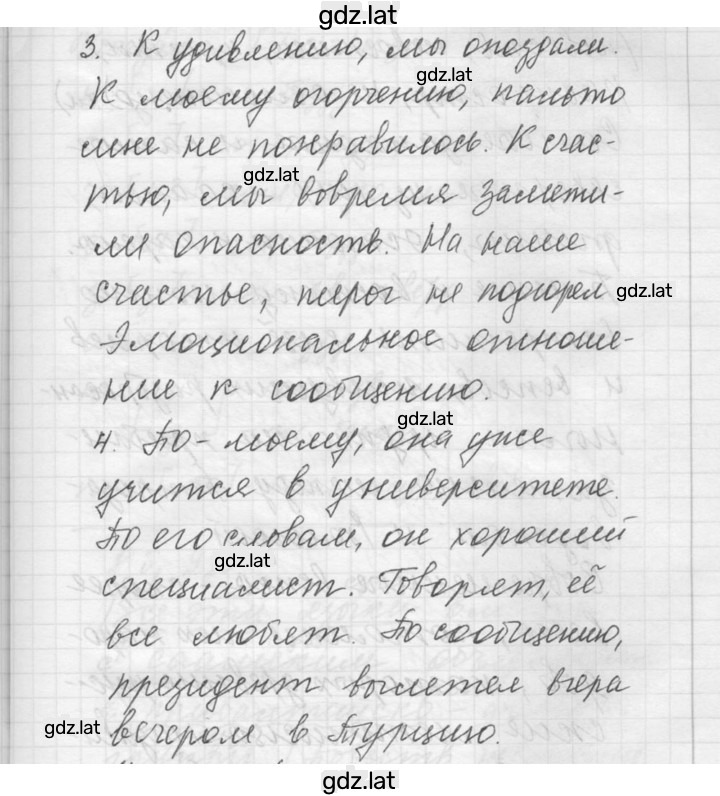 gdz.lat
3. К удивлению, мы опоздали.
gdz.lat
К моему огорчению, пальто
мне не понравилось. К счас-
gdz.lat
тью, мы вовремя замети-
ли опасность. На наше
счастье, пирог не подгорел
gdz.lat
Эмоциональное отноше-
ние к сообщению.
gdz.lat
4. По-моему, она уже
учится в университете.
По его словам, он хороший
gdz.lat
специалист. Говорят, её
все любят. По сообщению,
президент вылетел вчера
gdz.lat
вечером в Турцию.
gdz.lat